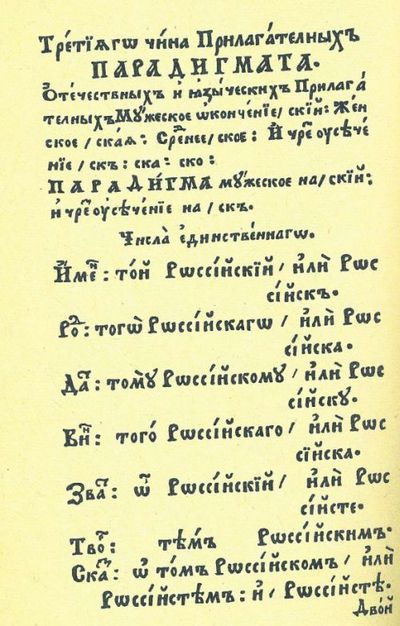 Тре́тїѧгѡ чи́на Прилага́телныхъ
ПАРАДИ́ГМАТА.
Ѻте́чествныхъ и҆ ꙗ҆зы́ческихъ Прилага́
телныхъ Мꙋ́жеское ѡ҆конче́нїе / скїй: Же́н
ское / ска́ѧ: Сре́нее / ское: И҆ чре ᲂу҆сѣче́
нїе / скъ: ска: ско:
ПАРАДИ́ГМА мꙋ́жеское на / скїй:
и҆ чре ᲂу҆сѣче́нїе на / скъ.
Числа̀ є҆ди́нственнагѡ.
И҆́мен: то́й Рѡссі́йскїй / и҆лѝ Рѡс
сі́йскъ.
Ро: тогѡ̀ Рѡссі́йскагѡ / и҆лѝ Рѡс
сі́йска.
Да: томꙋ̀ Рѡссі́йскомꙋ / и҆лѝ Рѡс
сі́йскꙋ.
Вин: того́ Рѡссі́йскаго / и҆лѝ Рѡс
сїйска.
Зва: ѽ Рѡссі́йскїй / и҆лѝ Рѡс
сі́йсте.
Тво: тѣ́мъ Рѡссі́йскимъ.
Ска: ѡ҆ то́мъ Рѡссі́йскомъ / и҆лѝ
Рѡссі́йстѣмъ: и҆ / Рѡссі́йстѣ.
Дво́й